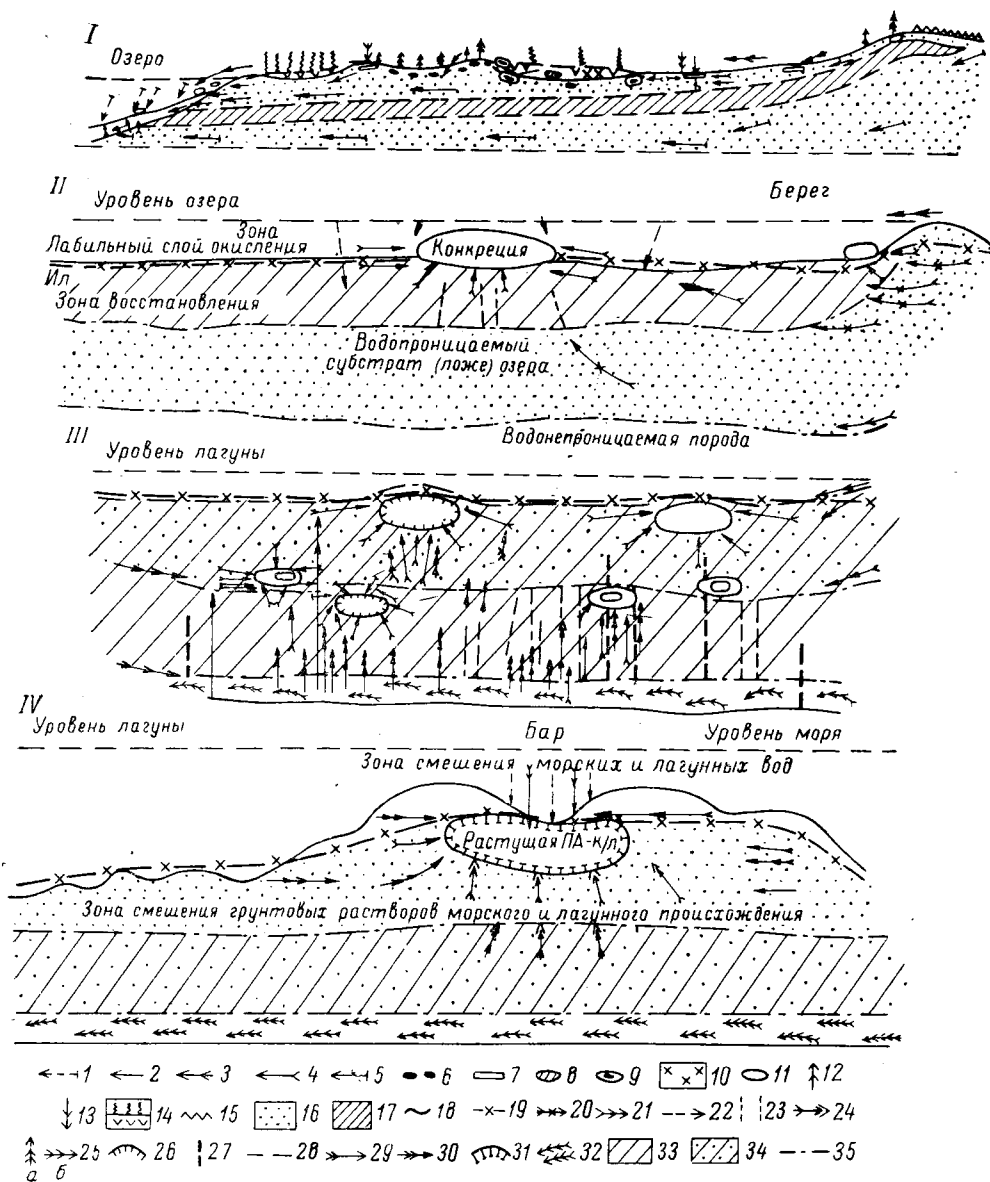 I
Озеро
т т т
II
Уровень озера
Берег
Зона
Лабильный слой окисления
Конкреция
Ил
Зона восстановления
Водопроницаемый
субстрат (ложе) озера
Водонепроницаемая порода
III
Уровень лагуны
IV
Уровень лагуны
Бар
Уровень моря
Зона смешения морских и лагунных вод
Растущая ПА-к/л
Зона смешения грунтовых растворов морского и лагунного происхождения
1 2 3 4 5 6 7 8 9 10 11 12
13 14 15 16 17 18 19 20 21 22 23 24
25 26 27 28 29 30 31 32 33 34 35
а б